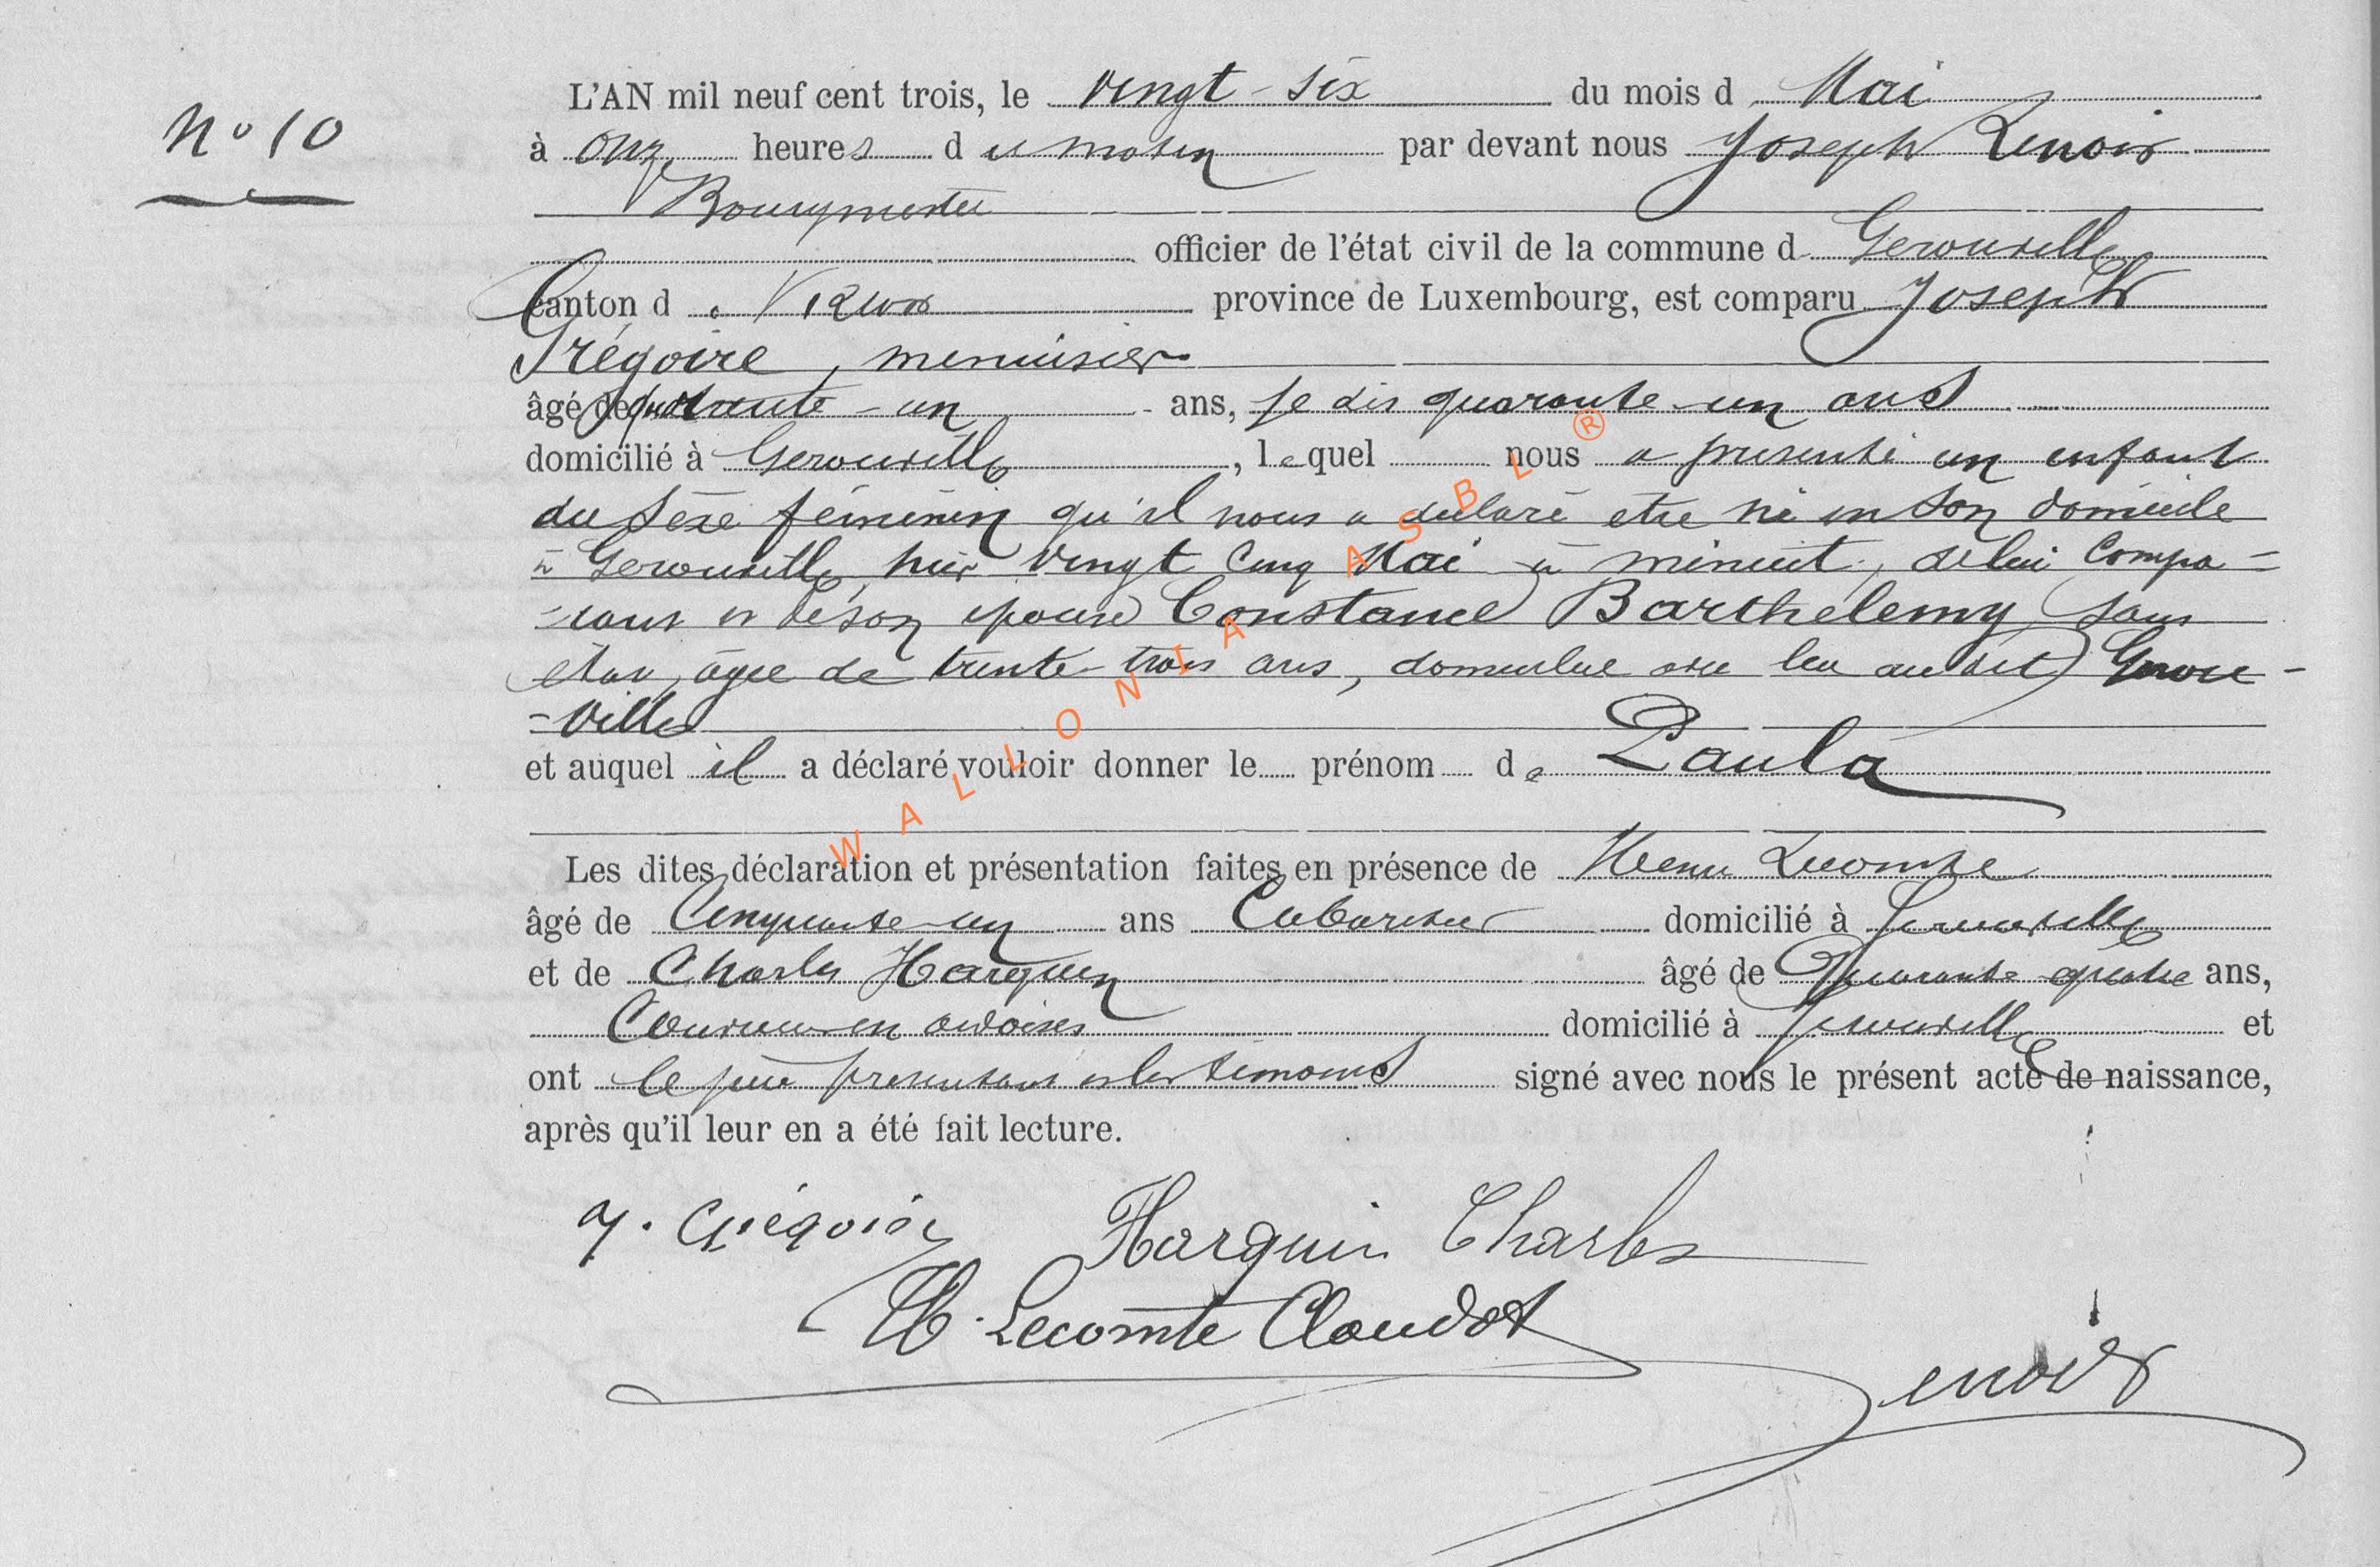 N° 10
L'AN mil neuf cent trois, le vingt-six du mois d Mai
à onze heures du matin par devant nous Joseph Lenoir
Bourgmestre
officier de l'état civil de la commune d Gerouville
Canton de Virton province de Luxembourg, est comparu Joseph
Grégoire, menuisier
âgé de quarante-un ans, je dis quarante-un ans
domicilié à Gerouville, lequel nous a présenté un enfant
du sexe féminin qu'il nous a déclaré etre né en son domicile
à Gerouville, hier vingt cinq Mai à minuit, de lui Compa=
=rant et de son épouse Constance Barthelemy sans
état, agée de trente-trois ans, domiciliée avec lui audit Gerou-
-ville
et auquel il a déclaré vouloir donner le prénom de Paula
Les dites déclaration et présentation faites en présence de Henri Lecomte
âgé de Cinquante-un ans Cabaretier domicilié à Gerouville
et de Charles Harquin âgé de Quarante-quatre ans,
Couvreur en ardoises domicilié à Gerouville et
ont le père présentant et les témoins signé avec nous le présent acte de naissance,
après qu'il leur en a été fait lecture.
J. Grégoire Harquin Charles
H. Lecomte Claudot
Lenoir
WALLONIA ASBL ®